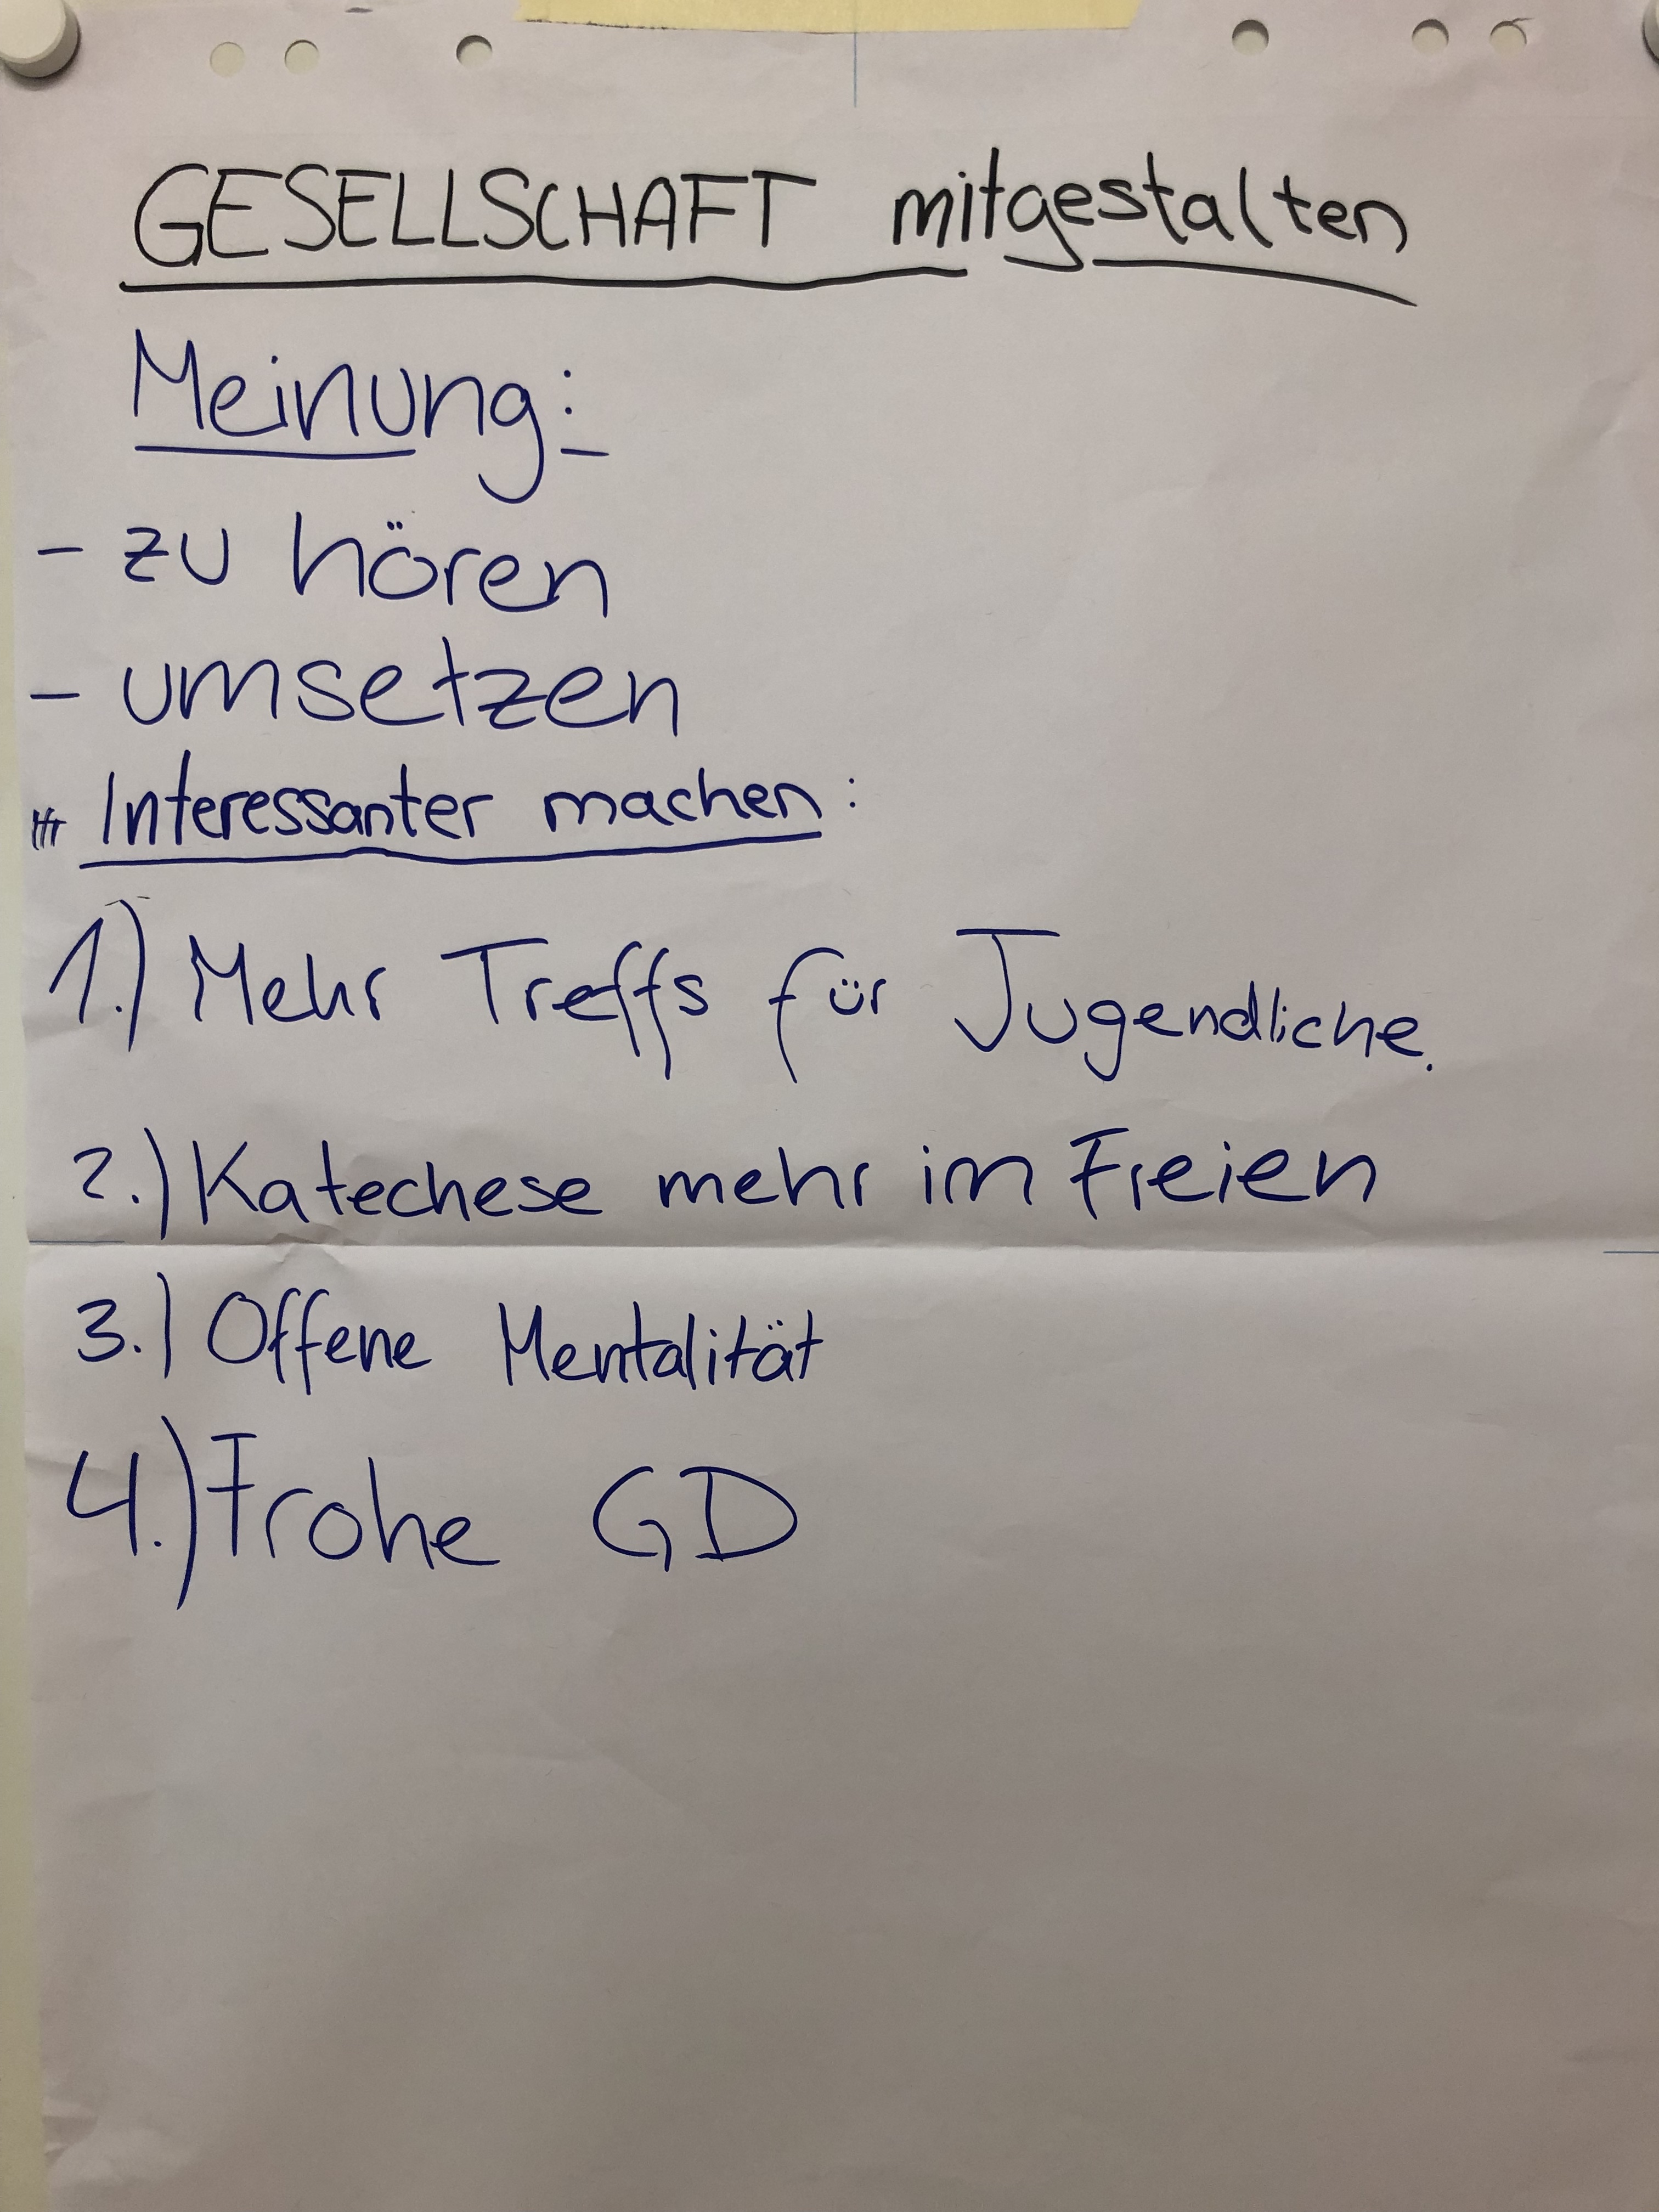 GESELLSCHAFT mitgestalten
Meinung:
- zu hören
- umsetzen
Interessanter machen:
1.) Mehr Treffs für Jugendliche.
2.) Katechese mehr im Freien
3.) Offene Mentalität
4.) Frohe GD